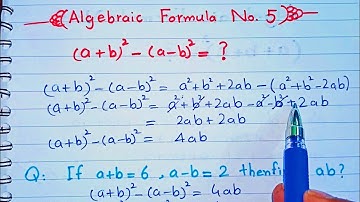 Algebraic Formula No. 5
(a+b)² - (a-b)² = ?
(a+b)² - (a-b)² = a²+b²+2ab - (a²+b²-2ab)
(a+b)² - (a-b)² = a²+b²+2ab - a² - b² + 2ab
= 2ab + 2ab
(a+b)² - (a-b)² = 4ab
Q: If a+b=6, a-b=2 then ab?
(a+b)² - (a-b)² = 4ab